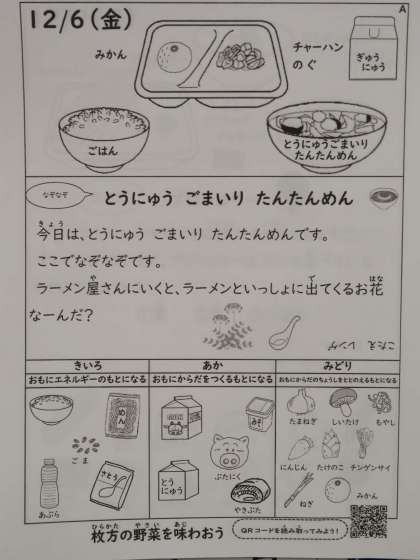 A
12/6(金)
みかん
チャーハン
のぐ
ぎゅう
にゅう
ごはん
とうにゅうごまいり
たんたんめん
なぞなぞ
とうにゅう ごまいり たんたんめん
きょう
今日は、とうにゅう ごまいり たんたんめんです。
ここでなぞなぞです。
や で はな
ラーメン屋さんにいくと、ラーメンといっしょに出てくるお花
なーんだ?
こたえ レンゲ
きいろ
おもにエネルギーのもとになる
あか
おもにからだをつくるもとになる
みどり
おもにからだのちょうしをととのえるもとになる
めん
ごま
あぶら
さとう
みそ
ぶたにく
とう
にゅう
やきぶた
たまねぎ
しいたけ
もやし
にんじん
たけのこ
チンゲンサイ
ねぎ
みかん
ひらかた やさい あじ
枚方の野菜を味わおう
QRコードを読み取ってみよう!